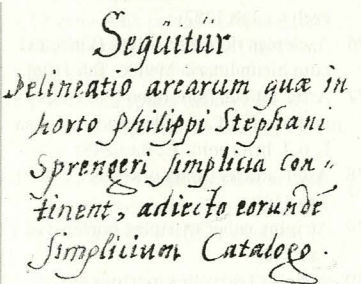 Seqűitűr
Delineatio arearum quæ in
horto Philippi Stephani
Sprengeri simplicia con=
tinent, adiecto eorundē
simplicium Catalogo.